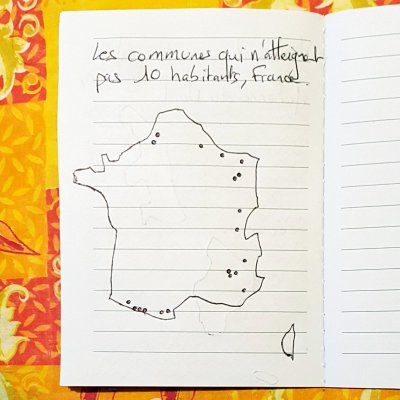 Les communes qui n'atteignent
pas 10 habitants, France.